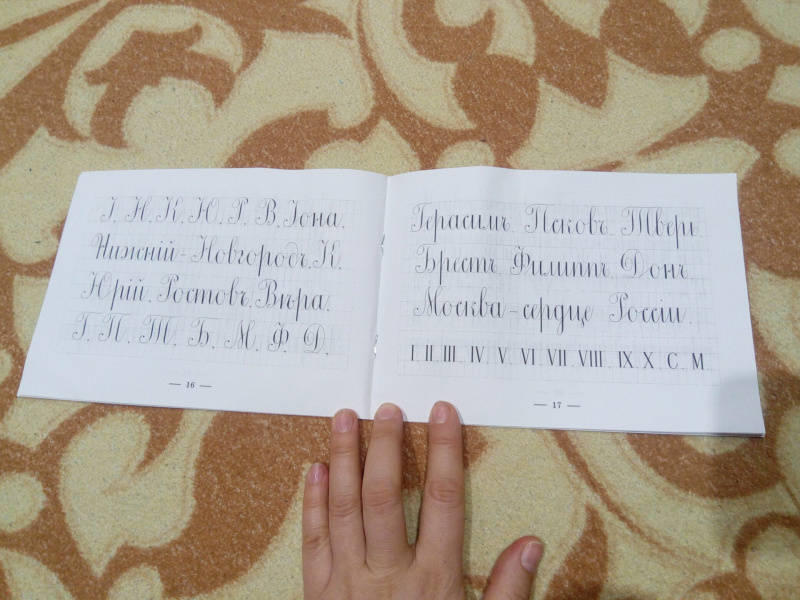 І. Н. К. Ю. Р. В. Іона.
Нижній-Новгородъ. К.
Юрій. Ростовъ. Вѣра.
Г. П. Т. Б. М. Ф. Д.
— 16 —
Герасимъ. Псковъ. Тверь.
Брестъ. Филиппъ. Донъ.
Москва-сердце Россіи.
I. II. III. IV. V. VI. VII. VIII. IX. X. C. M.
— 17 —